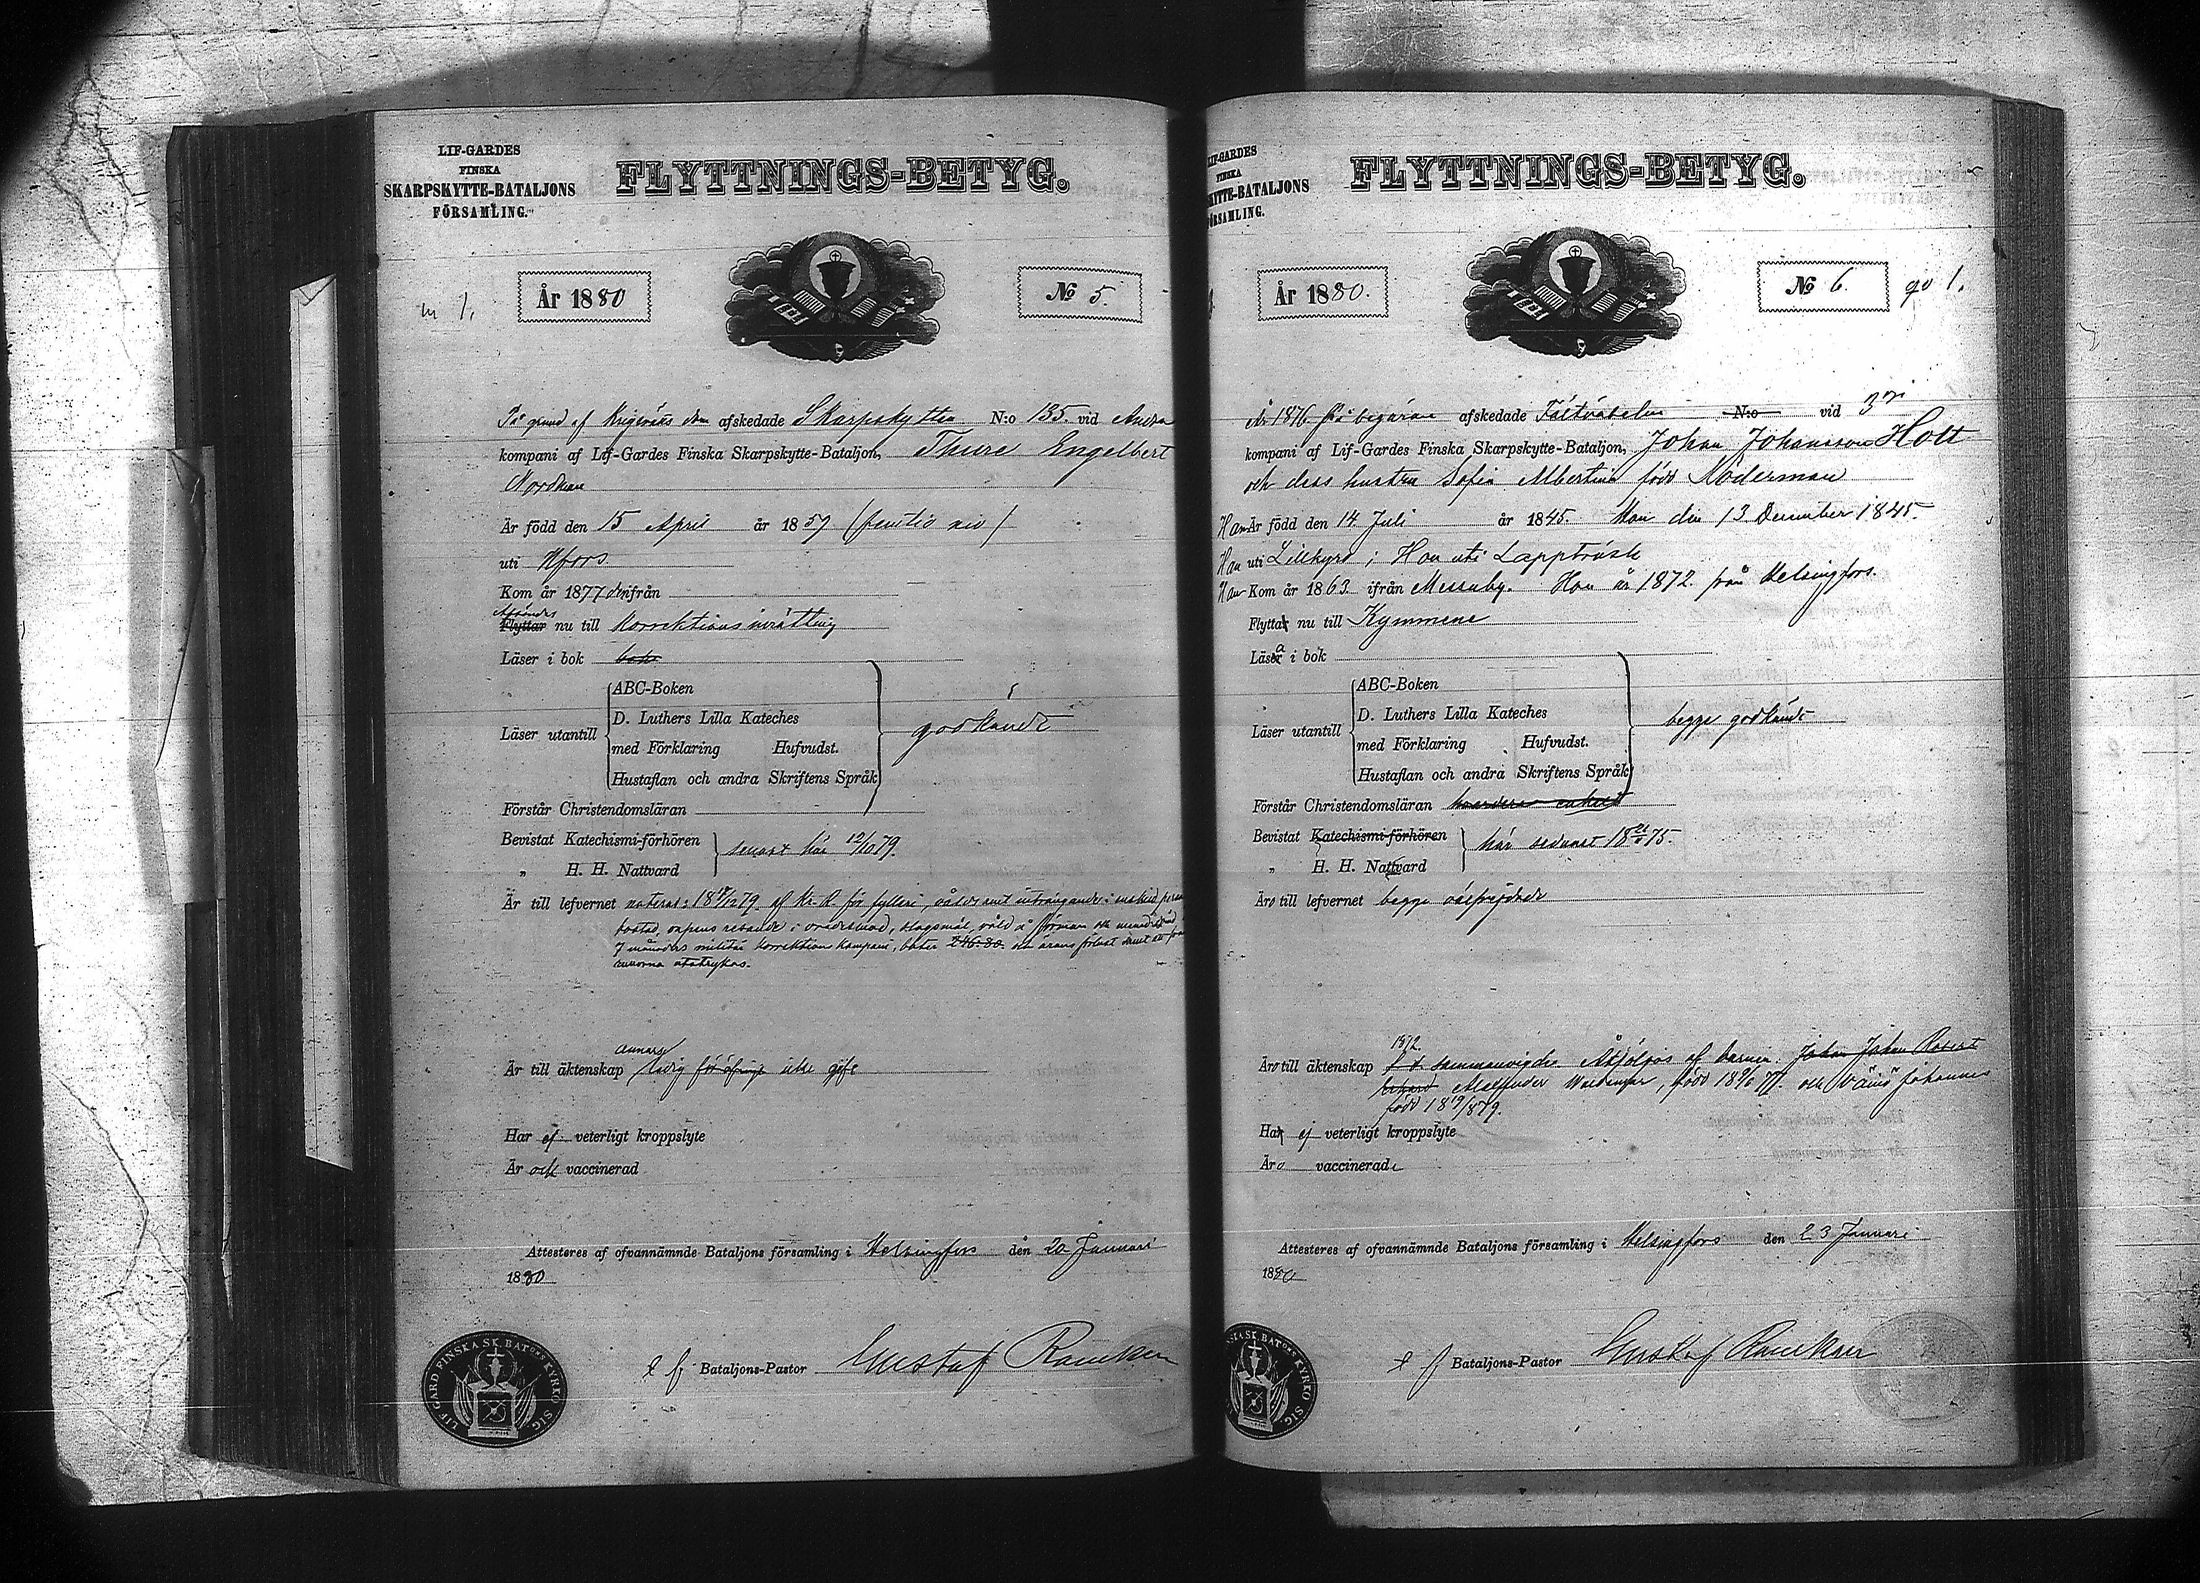 LIF-GARDES
FINSKA
SKARPSKYTTE-BATALJONS
FÖRSAMLING.
FLYTTNINGS-BETYG.
År 1880
№ 5.
På grund af Krigsrätts dom afskedade Skarpskytten N:o 135. vid Andra
kompani af Lif-Gardes Finska Skarpskytte-Bataljon, Thure Engelbert
Nordman
Är född den 15 April år 1859 (femtio nio)
uti Hfors
Kom år 1877 ifrån
Afsändes
Flyttar nu till Korrektionsinrättning
Läser i bok
Läser utantill
ABC-Boken
D. Luthers Lilla Kateches
med Förklaring Hufvudst.
Hustaflan och andra Skriftens Språk
godkändt
Förstår Christendomsläran
Bevistat Katechismi-förhören
„ H. H. Nattvard
senast här 12/10 79.
Är till lefvernet af Kr. R. för fylleri, våldsamt inträngande i enskild
bostad, slagsmål, våld å
7 månaders militär korrektions kompani, böta 246.80. och ärans förlust samt att
annars
Är till äktenskap ledig för öfrigt icke gift
Har ej veterligt kroppslyte
Är och vaccinerad
Attesteres af ofvannämnde Bataljons församling i Helsingfors den 20 Januari
1880
e f Bataljons-Pastor Gustaf Rancken
LIF GARD FINSKA SK. BATONS KYRKO SIG.
LIF-GARDES
FINSKA
SKYTTE-BATALJONS
FÖRSAMLING.
FLYTTNINGS-BETYG.
År 1880.
№ 6. 1.
År 1876 på begäran afskedade Fältväbeln N:o vid 3e
kompani af Lif-Gardes Finska Skarpskytte-Bataljon, Johan Johansson Holt
och dess hustru Sofia Albertina född Söderman
Han Är född den 14 Juli år 1845. Hon den 13 December 1845.
Han uti Lillkyro; Hon uti Lappträsk
Han Kom år 1863 ifrån Messuby. Hon år 1872 från Helsingfors.
Flytta nu till Kymmene
Läsa i bok
Läser utantill
ABC-Boken
D. Luthers Lilla Kateches
med Förklaring Hufvudst.
Hustaflan och andra Skriftens Språk
begge godkändt
Förstår Christendomsläran
Bevistat Katechismi-förhören
„ H. H. Nattvard
här sednast 75.
Äro till lefvernet begge välfrejdade
1872.
Äro till äktenskap sammanvigda. Åtföljas af barnen. Johan Johan Robert
Alexander Waldemar, född 77. och Väinö Johannes
född 18 19/8 79.
Ha ej veterligt kroppslyte
Äro vaccinerade
Attesteres af ofvannämnde Bataljons församling i Helsingfors den 23 Januari
1880
e f Bataljons-Pastor Gustaf Rancken
SK. BATONS KYRKO SIG.